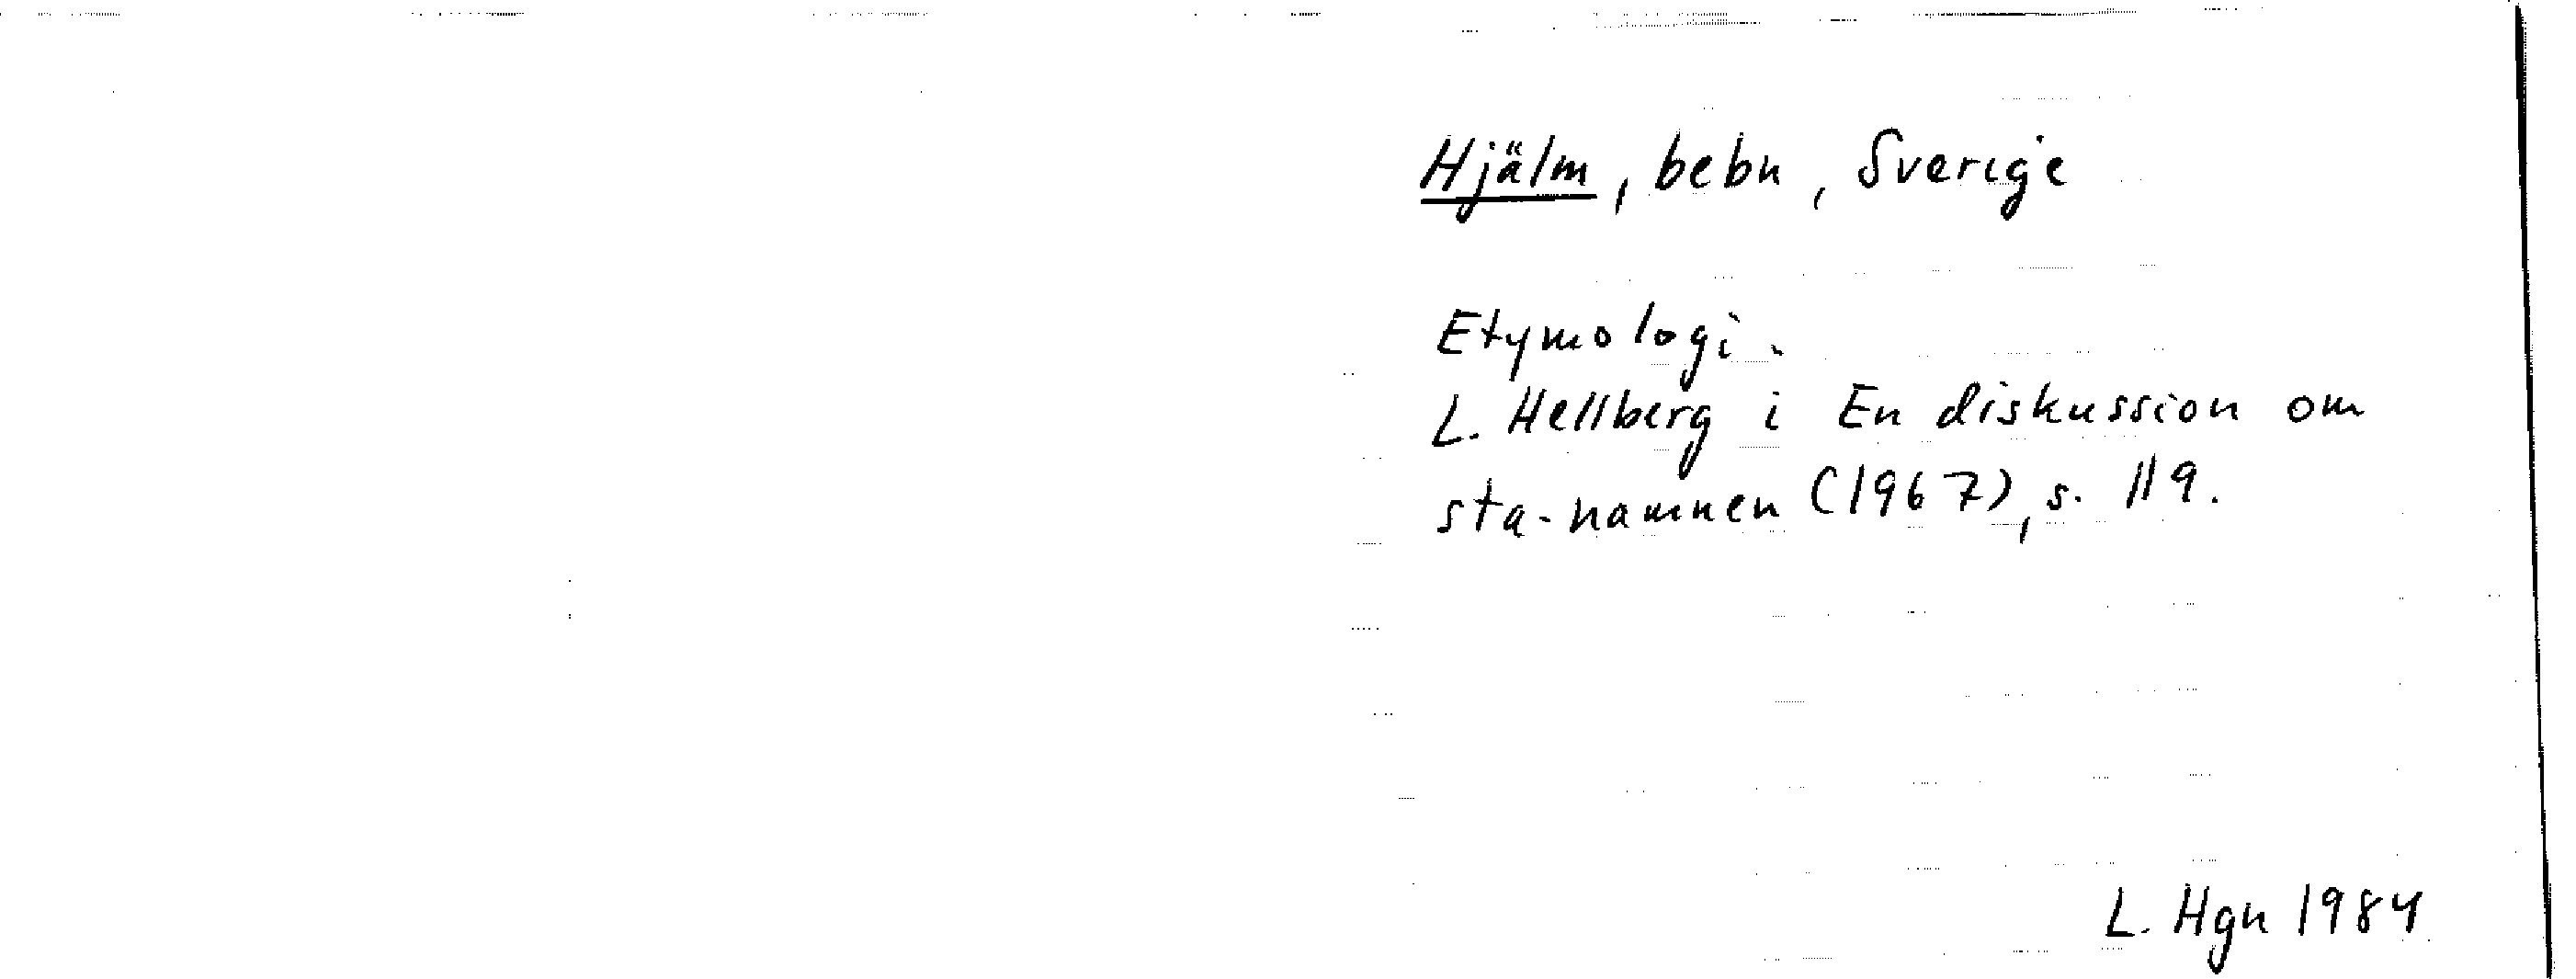 Hjälm, bebn, Sverige
Etymologi.
L. Hellberg i En diskussion om
sta-namnen (1967), s. 119.
L. Hgn 1984